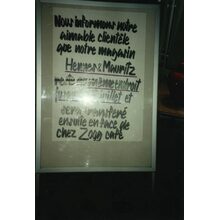 Nous informons notre
aimable clientèle
que notre magasin
Hermes & Mauritz
et
sera transféré
ensuite en face de
chez Zogo café